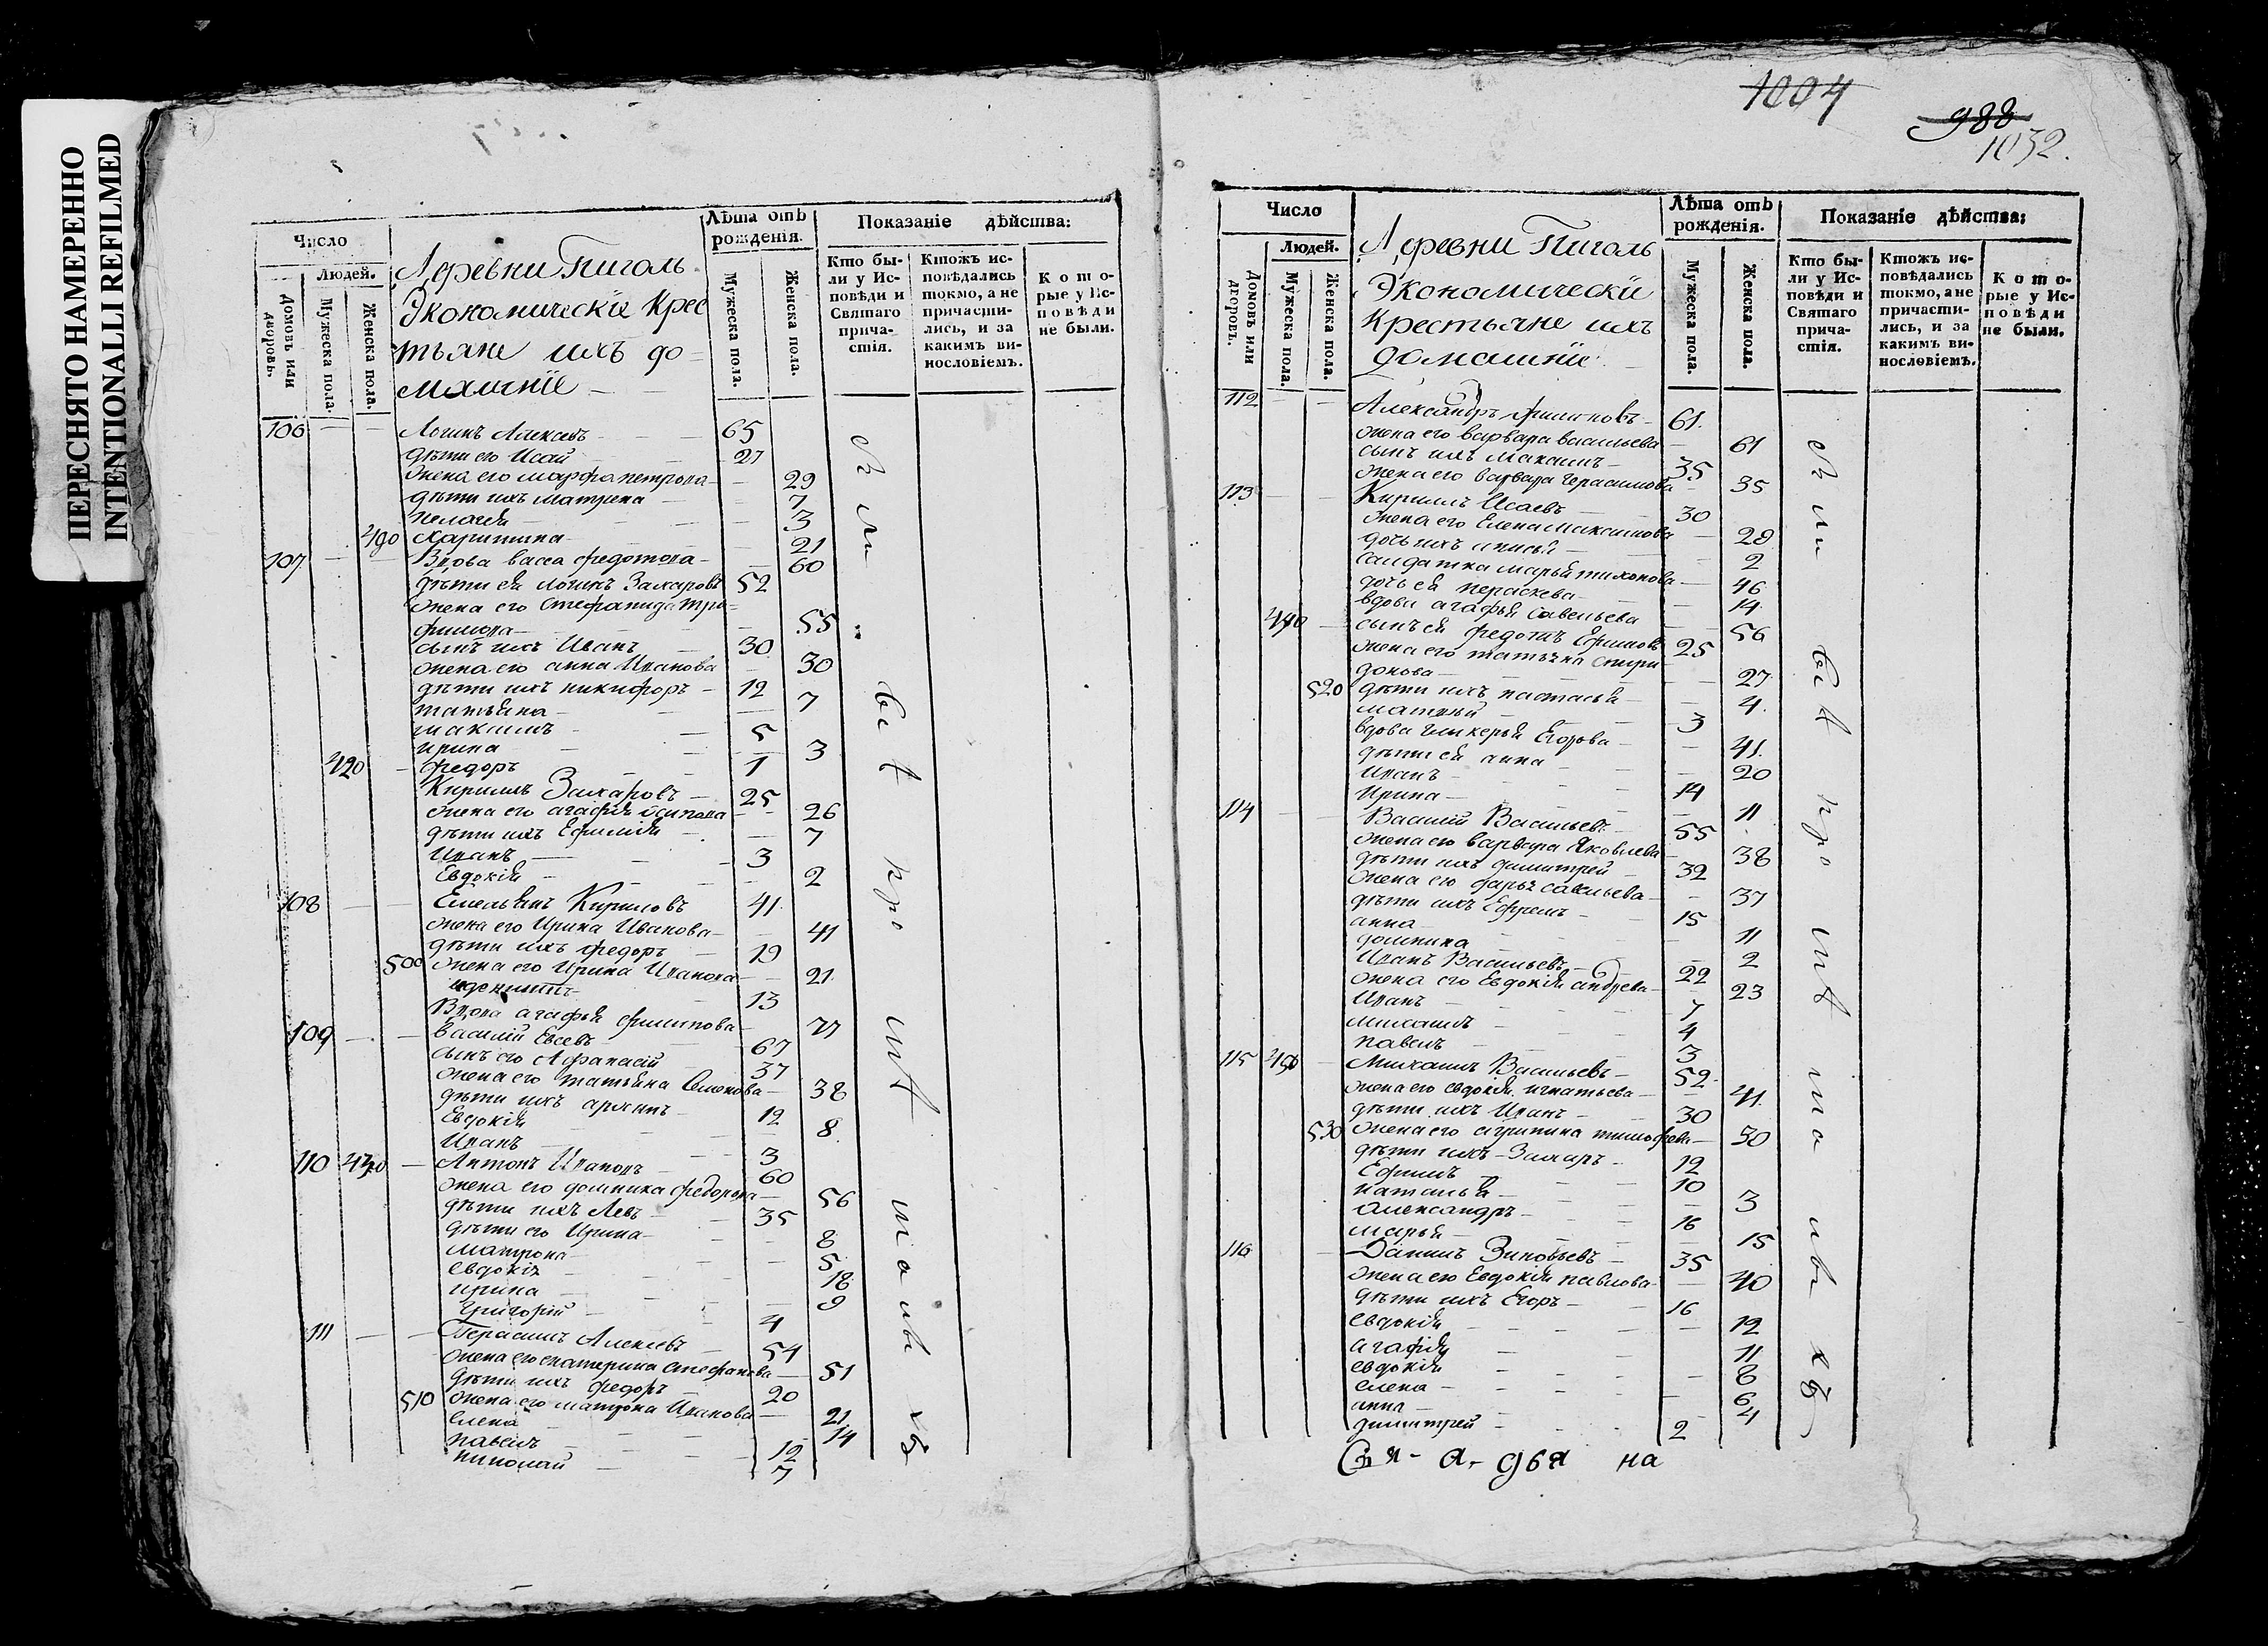 ПЕРЕСНЯТО НАМЕРЕННО
INTENTIONALLI REFILMED
Число
Людей.
Домовъ или дворовъ.
Мужеска пола.
Женска пола.
Деревни Пиголь
Экономическїе Крес
тьяне ихъ до=
машнїе
Лѣта отъ рожденїя.
Мужеска пола.
Женска пола.
Показанїе дѣйства:
Кто были у Исповѣди и Святаго причастїя.
Ктожъ исповѣдались токмо, а не причастились, и за какимъ винословїемъ.
Которые у Исповѣди не были.
106 Логинъ Алексевъ 65
дѣти его Исай 27
жена его марфа петрова 29
дѣти ихъ матрена 7
пелагея 3
490 харитина 21
107 Вдова васса федотова 60
дѣти ея логинъ Захаровъ 52
жена его стефанида три=
фонова 55
сынъ ихъ Иванъ 30
жена его анна Иванова 30
дѣти ихъ никифоръ 12
татьяна 7
максимъ 5
ирина 3
420 федоръ 1
Кирилъ Захаровъ 25
жена его агафья осипова 26
дѣти ихъ Ефимия 7
Иванъ 3
Евдокия 2
108 Емельянъ Кириловъ 41
жена его Ирина Иванова 41
дѣти ихъ федоръ 19
500 жена его Ирина Иванова 21
13
Вдова агафья филипова 77
109 василий Евсевъ 67
сынъ его Афанасий 37
жена его татьяна Семенова 38
дѣти ихъ архипъ 12
Евдокия 8
Иванъ 3
110 430 Антонъ Ивановъ 60
жена его домника федорова 56
дѣти ихъ Левъ 35
дѣти его Ирина 8
матрона 5
евдокия 18
ирина 9
Григорий 4
111 Герасимъ Алексевъ 54
жена его екатерина стефанова 51
дѣти ихъ федоръ 20
510 жена его матрона Иванова 21
елена 14
павелъ 12
николай 7
1004
988
1032.
Число
Людей.
Домовъ или дворовъ.
Мужеска пола.
Женска пола.
Деревни Пиголь
Экономическїе
Крестьяне ихъ
домашнїе
Лѣта отъ рожденїя.
Мужеска пола.
Женска пола.
Показанїе дѣйства:
Кто были у Исповѣди и Святаго причастїя.
Ктожъ исповѣдались токмо, а не причастились, и за какимъ винословїемъ.
Которые у Исповѣди не были.
112 Александръ филиповъ 61
жена его варвара васильева 61
сынъ ихъ максимъ 35
жена его варвара Герасимова 35
113 Кирилъ Исаевъ 30
жена его Елена максимова 28
дочь ихъ 2
салдатка марья тихонова 46
дочь ея параскева 14
вдова агафья савельева 56
440 сынъ ея федотъ Ефимовъ 25
жена его татьяна спири
донова 27
520 дѣти ихъ настасья 4
матвей 3
вдова гликерья Егорова 41
дѣти ея анна 20
Иванъ 14
Ирина 11
114 Василий Васильевъ 55
жена его варвара Яковлева 38
дѣти ихъ димитрей 32
жена его дарья савельева 37
дѣти ихъ Ефремъ 15
анна 11
домника 2
Иванъ Васильевъ 22
жена его Евдокия андрева 23
Иванъ 7
михаилъ 4
павелъ 3
115 450 Михаилъ Васильевъ 52
жена его евдокия игнатьева 41
дѣти ихъ Иванъ 30
530 жена его агрипина тимофеева 30
дѣти ихъ Захаръ 12
Ефимъ 10
наталья 3
александръ 16
марья 15
116 Данилъ Зиновьевъ 35
жена его Евдокия павлова 40
дѣти ихъ Егоръ 16
евдокия 12
агафия 11
евдокия 8
елена 6
анна 4
димитрей 2
на